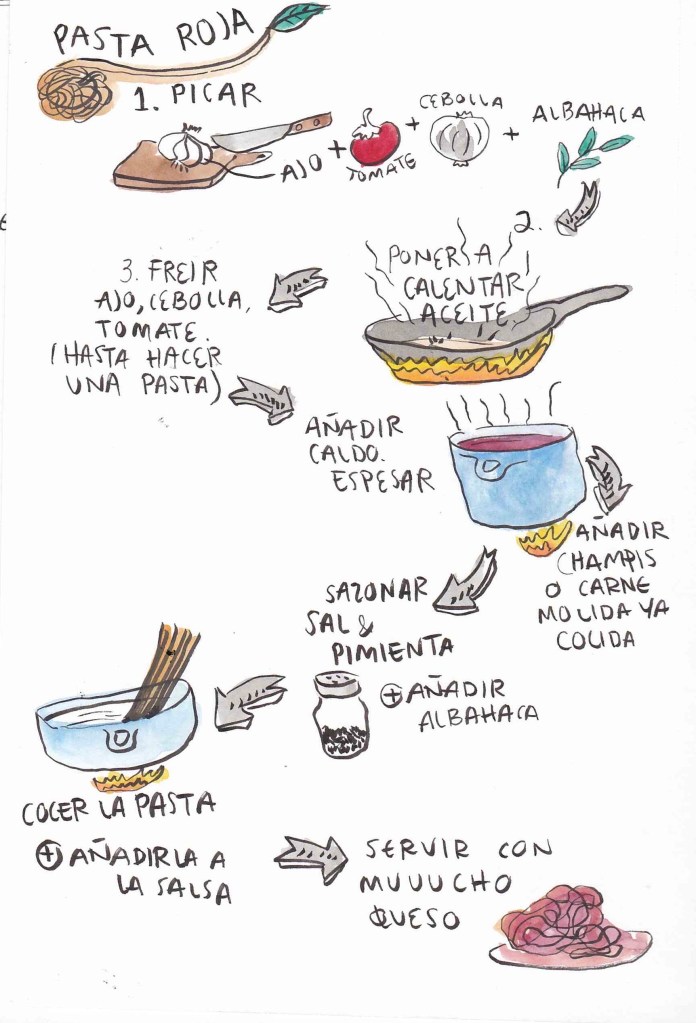 PASTA ROJA
1. PICAR
AJO
+
TOMATE
+
CEBOLLA
+
ALBAHACA
2.
PONER A
CALENTAR
ACEITE
3. FREIR
AJO, CEBOLLA,
TOMATE.
(HASTA HACER
UNA PASTA)
AÑADIR
CALDO.
ESPESAR
AÑADIR
CHAMPIS
O CARNE
MOLIDA YA
COCIDA
SAZONAR
SAL &
PIMIENTA
+ AÑADIR
ALBAHACA
COCER LA PASTA
+ AÑADIRLA A
LA SALSA
SERVIR CON
MUUUCHO
QUESO